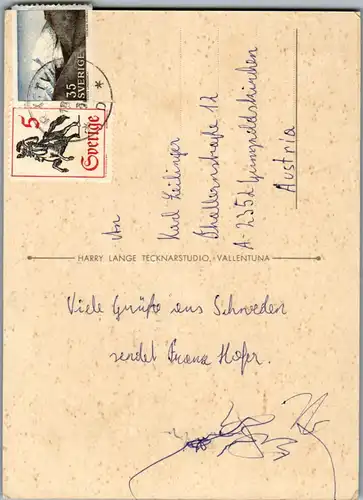 35
SVERIGE
5
Sverige
An
Karl Zeilinger
A-2352 Gumpoldskirchen
Austria
HARRY LANGE TECKNARSTUDIO, VALLENTUNA
Viele Grüße aus Schweden
sendet Franz Hofer.